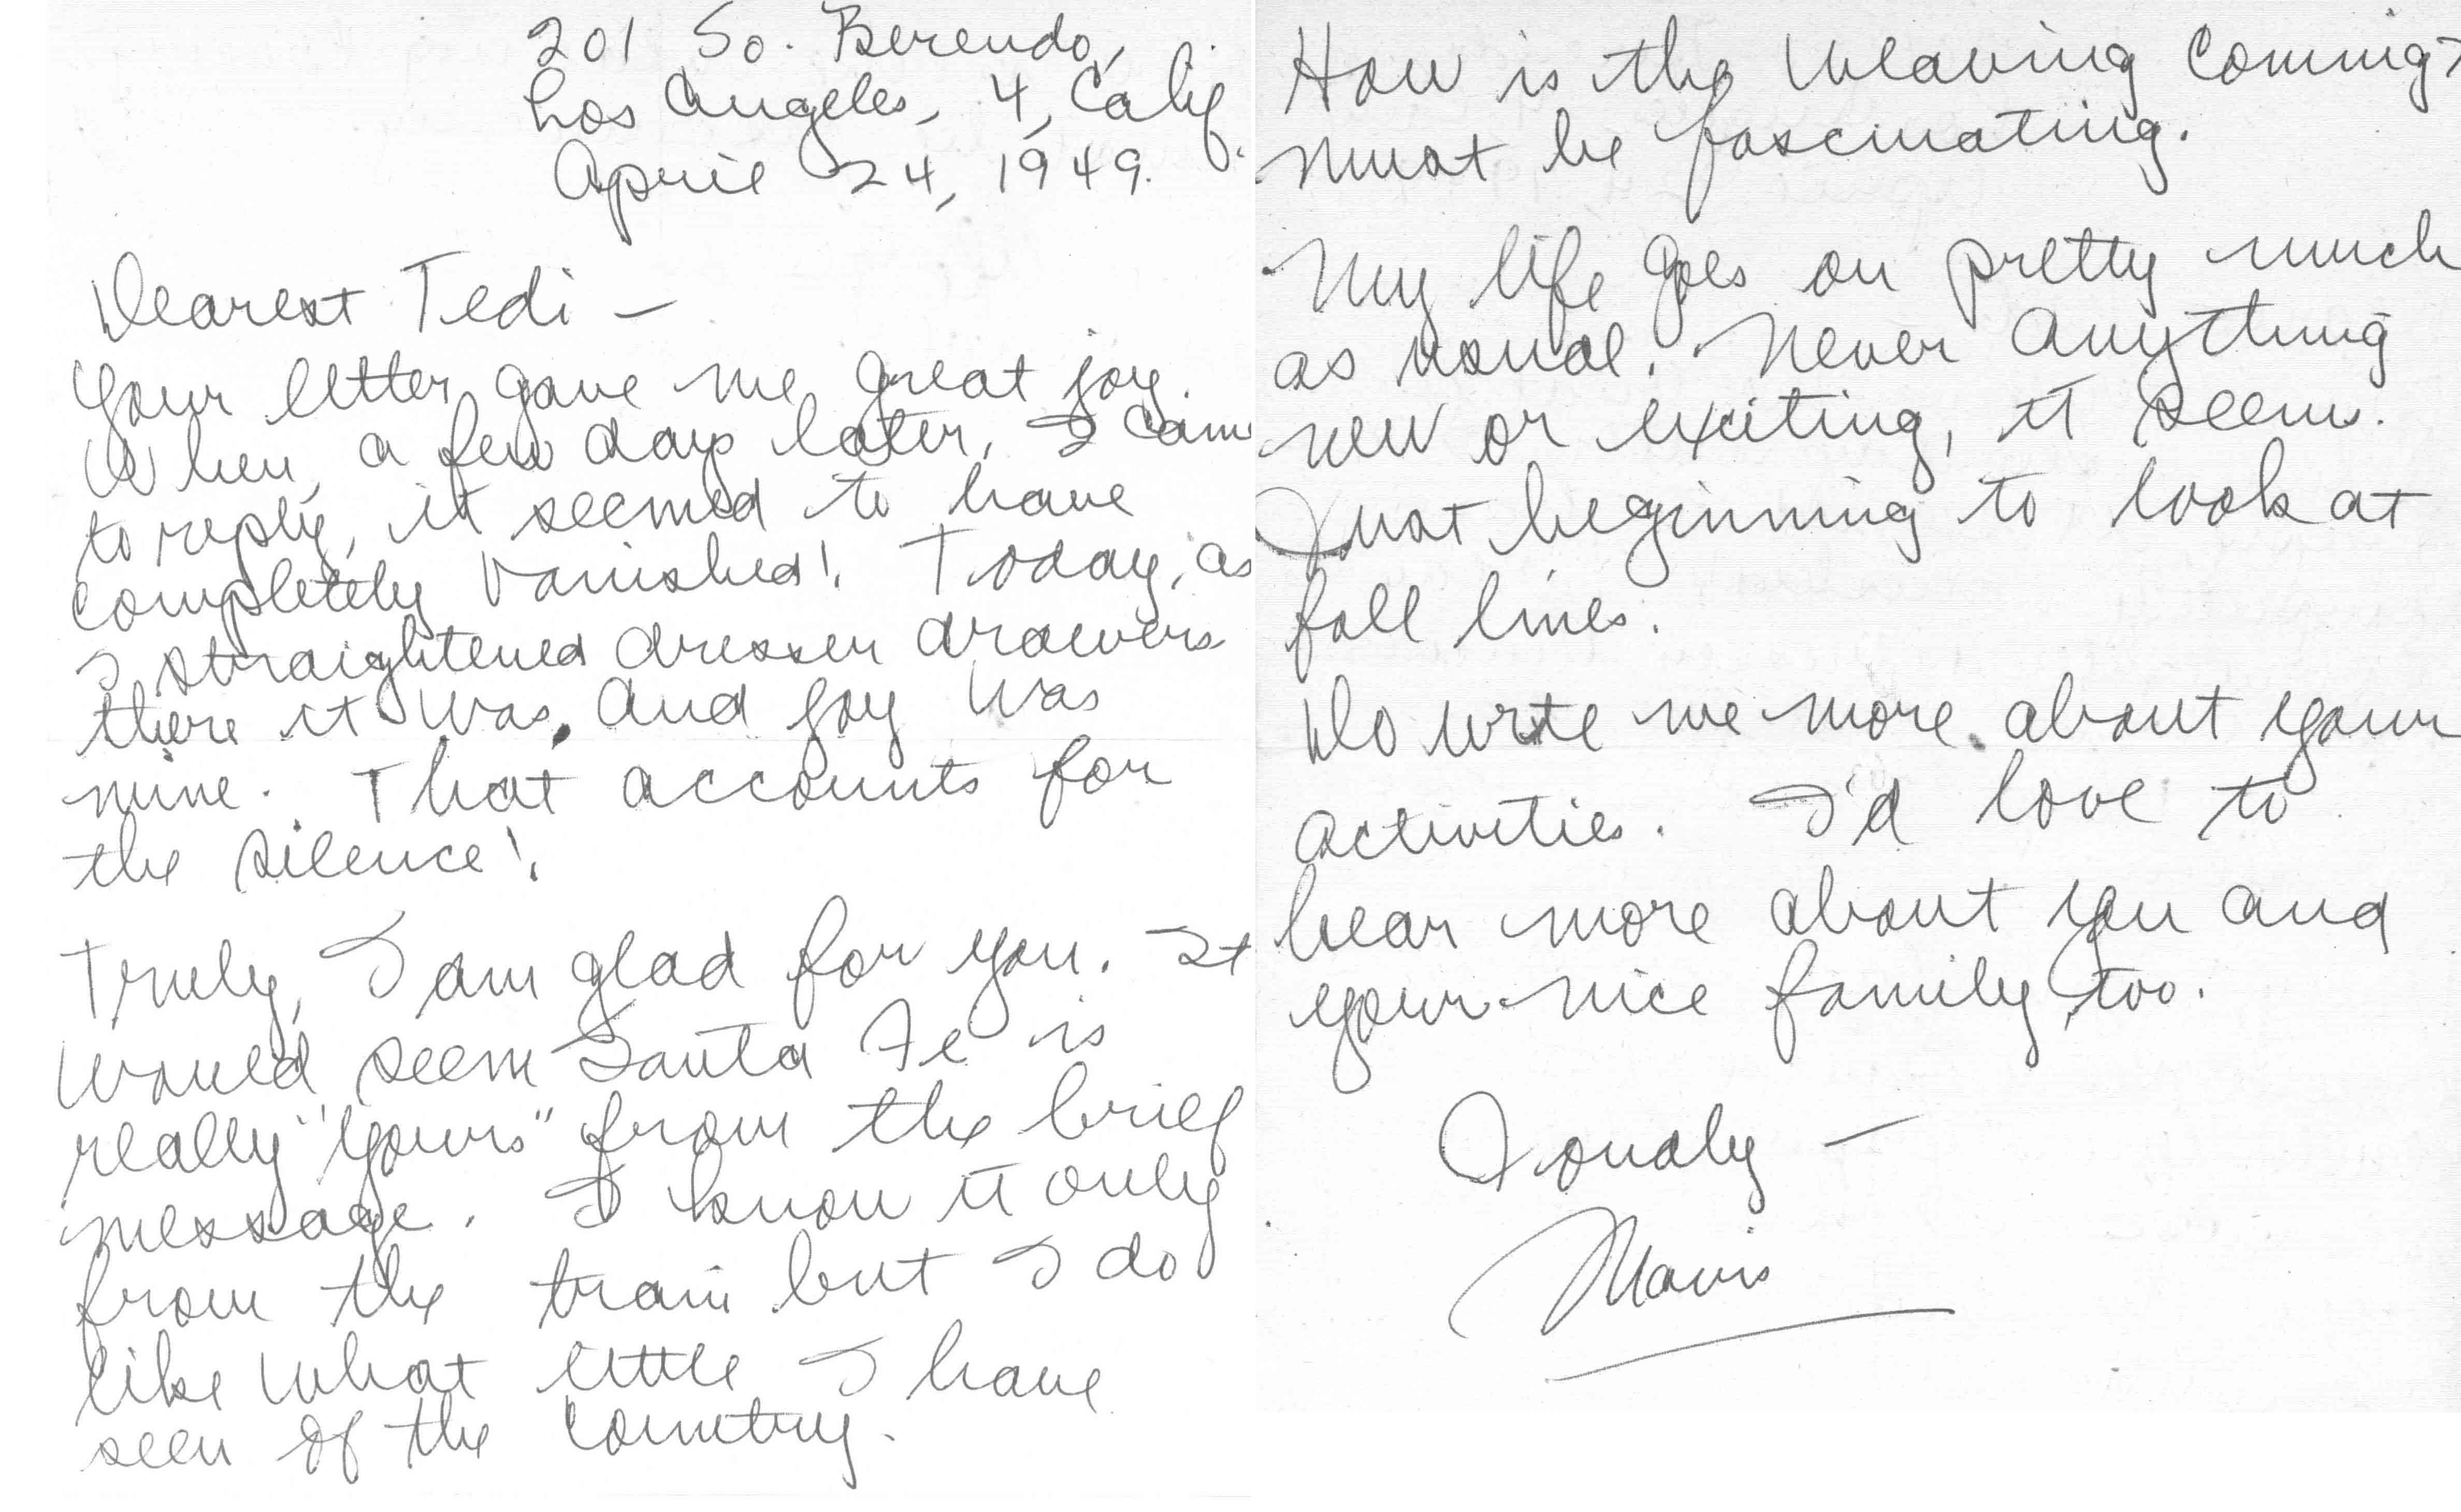 201 So. Berendo,
Los Angeles, 4, Calif.
April 24, 1949.
Dearest Tedi –
Your letter gave me great joy.
When, a few days later, I came
to reply, it seemed to have
completely vanished! Today, as
I straightened dresser drawers
there it was, and joy was
mine. That accounts for
the silence!
Truly, I am glad for you. It
would seem Santa Fe is
really "yours" from the brief
message. I know it only
from the train but I do
like what little I have
seen of the country.
How is the weaving coming?
Must be fascinating.
My life goes on pretty much
as usual. Never anything
new or exciting, it seems.
Just beginning to look at
fall lines.
Do write me more about your
activities. I'd love to
hear more about you and
your nice family, too.
Fondly –
Mavis